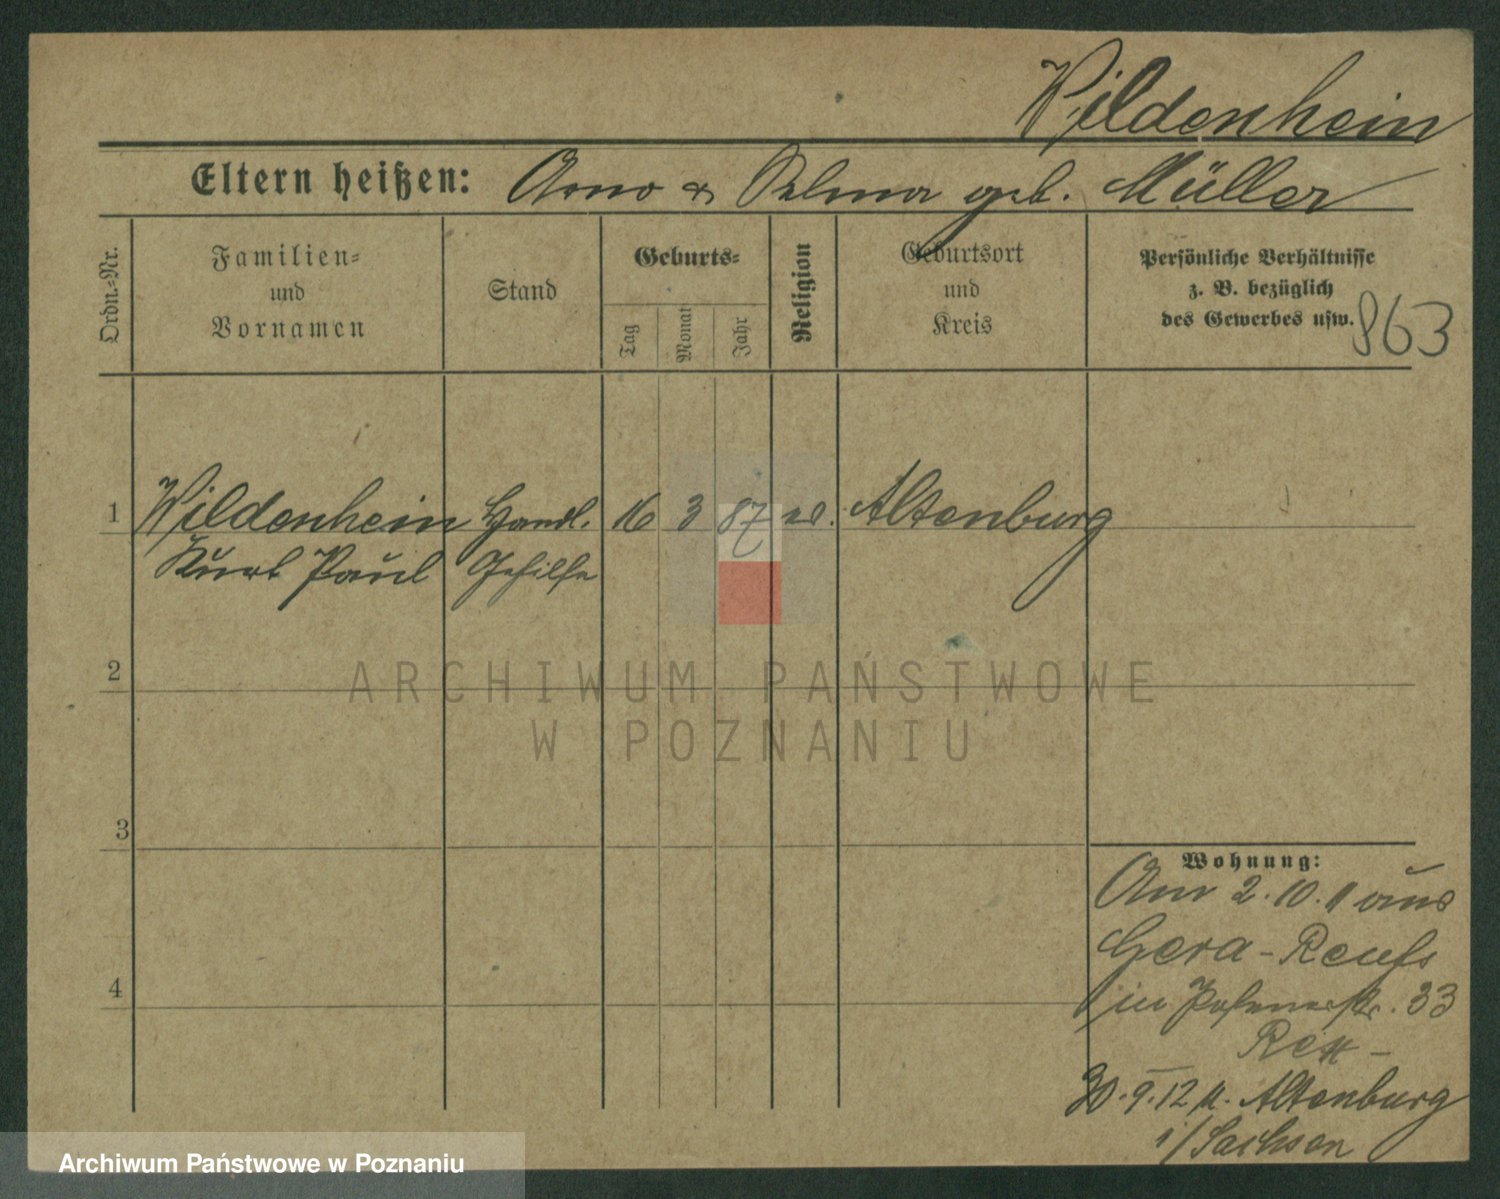 Wildenhein
Eltern heißen: Arno & Selma geb. Müller
Ordn.-Nr.
Familien- und Vornamen
Stand
Geburts-
Tag
Monat
Jahr
Religion
Geburtsort und Kreis
Persönliche Verhältnisse
z. B. bezüglich
des Gewerbes usw.
863
1 Wildenhein Handl. 16 3 87 ev. Altenburg
Kurt Paul Gehilfe
2
3
4
Wohnung:
Am 2.10.11 aus
Gera-Reuss
in Posenerstr. 33
30.9.12 n. Altenburg
i/Sachsen
ARCHIWUM PAŃSTWOWE
W POZNANIU
Archiwum Państwowe w Poznaniu